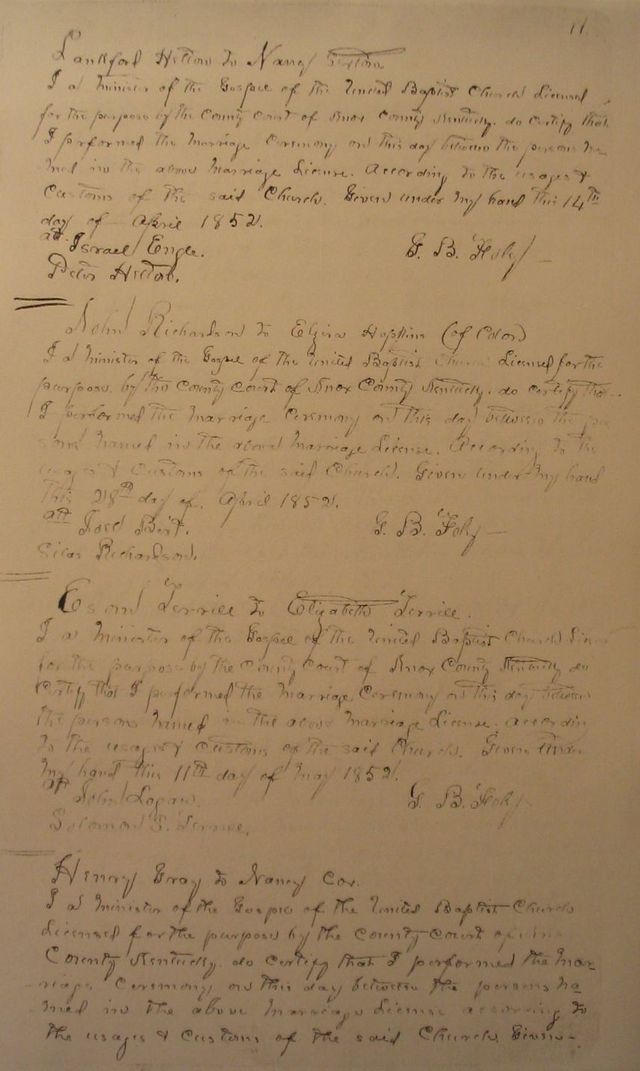 11.
Lankford Hilton to Nancy
I a Minister of the Gospel of the United Baptist Church Licensed
for the purpose by the County Court of Knox County Kentucky. do certify that
I performed the Marriage Ceremony on this day between the persons na-
med in the above Marriage License. According to the usages &
Customs of the said Church. Given under my hand this 14th
day of April 1852.
att. Israel Engle. G. B. Foley
Peter Hilton.
John Richardson to Elzira Hopkins (of Color)
I a Minister of the Gospel of the United Baptist Church Licensed for the
purpose by the County Court of Knox County Kentucky. do certify that
I performed the Marriage Ceremony on this day between the per
sons named in the above Marriage License. According to the
usages & Customs of the said Church. Given under my hand
This 28th day of April 1852.
att G. B. Foley
Silas Richardson.
Esom Terrill to Elizabeth Terrill.
I a Minister of the Gospel of the United Baptist Church Licen
for the purpose by the County Court of Knox County Kentucky do
Certify that I performed the Marriage Ceremony on this day between
the persons named in the above Marriage License. accordin
to the usages & Customs of the said Church. Given under
my hand this 11th day of May 1852.
att John Logan. G. B. Foley
Solomon S. Terrill.
Henry Gray to Nancy Cox.
I a Minister of the Gospel of the United Baptist Church
Licensed for the purpose by the County Court of Knox
County Kentucky. do certify that I performed the Mar-
riage Ceremony on this day between the persons na-
med in the above Marriage License according to
the usages & Customs of the said Church. Given